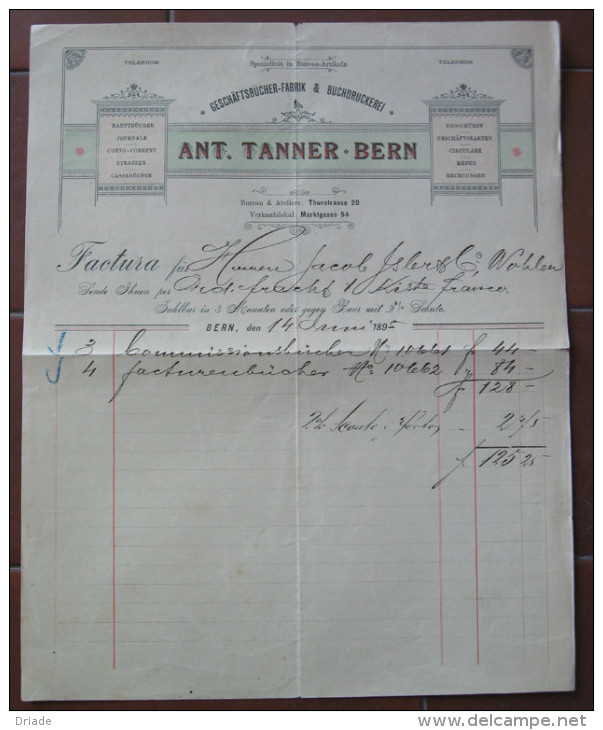 TELEPHON
Spezialität in Bureau-Artikeln
TELEPHON
GESCHÄFTSBÜCHER-FABRIK & BUCHDRUCKEREI
HAUPTBÜCHER
JOURNALE
CONTO-CORRENT
STRAZZEN
CASSABÜCHER
BROSCHÜREN
GESCHÄFTSKARTEN
CIRCULARE
MENUS
RECHNUNGEN
ANT. TANNER · BERN
Bureau & Ateliers: Thunstrasse 20
Verkaufslokal: Marktgasse 54
Factura für Herren Jacob Isler & Co, Wohlen
Sende Ihnen per Eilfracht 1 Kiste franco
Zahlbar in 3 Monaten oder gegen Baar mit 2% Sconto.
BERN, den 14 Juni 189
3 Commissionsbücher No 10661 fr 44 -
4 Facturenbücher No 10662 " 84 -
fr 128 -
2% Sconto - 2 75
fr 125 25
Driade
www.delcampe.net